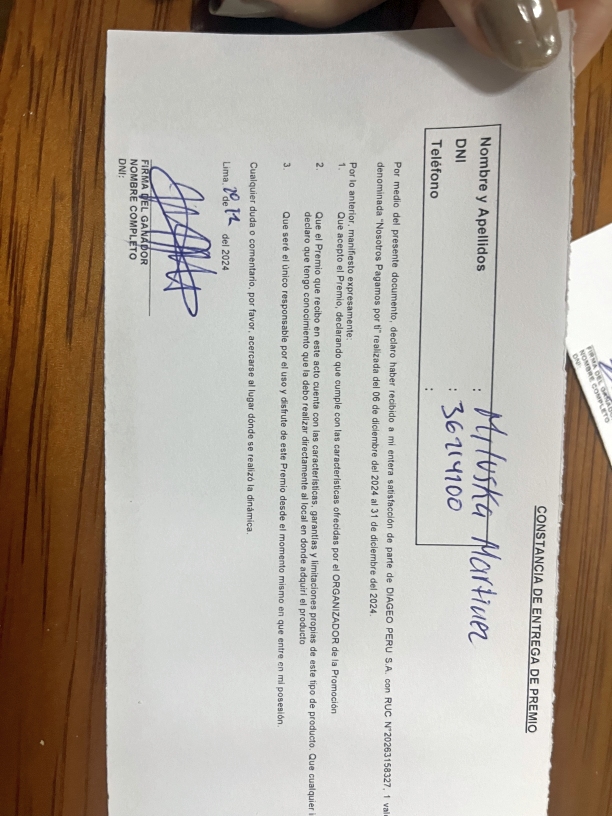 CONSTANCIA DE ENTREGA DE PREMIO
Nombre y Apellidos : Miluska Martinez
DNI : 36214100
Teléfono :
Por medio del presente documento, declaro haber recibido a mi entera satisfacción de parte de DIAGEO PERU S.A. con RUC N°20263158327, 1
denominada "Nosotros Pagamos por ti" realizada del 06 de diciembre del 2024 al 31 de diciembre del 2024.
Por lo anterior, manifiesto expresamente:
1. Que acepto el Premio, declarando que cumple con las características ofrecidas por el ORGANIZADOR de la Promoción
2. Que el Premio que recibo en este acto cuenta con las características, garantías y limitaciones propias de este tipo de producto. Que cualquier
declaro que tengo conocimiento que la debo realizar directamente al local en donde adquirí el producto
3. Que seré el único responsable por el uso y disfrute de este Premio desde el momento mismo en que entre en mi posesión.
Cualquier duda o comentario, por favor, acercarse al lugar dónde se realizó la dinámica.
Lima, 20 de 12 del 2024
FIRMA DEL GANADOR
NOMBRE COMPLETO
DNI:
FIRMA DEL
NOMBRE COMPLETO
DNI: